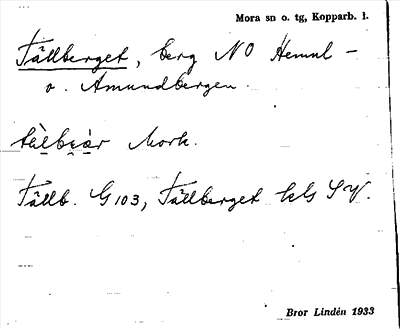 Mora sn o. tg, Kopparb. l.
Fällberget, berg NO Hemul-
o. Amundbergen.
Mork.
Fällb. G103, Fällberget kls SV.
Bror Lindén 1933